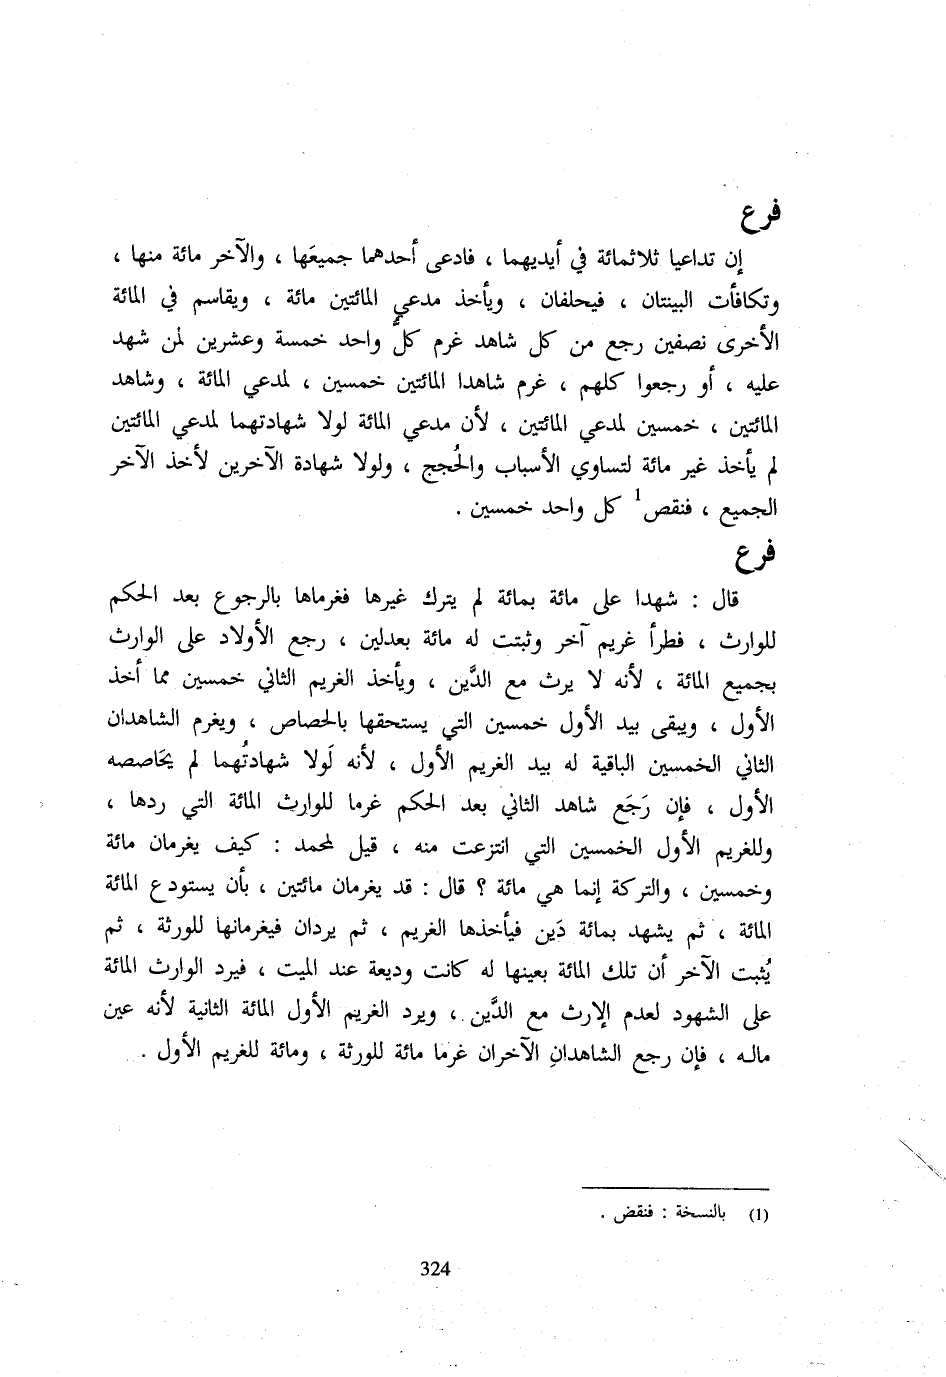 فرع
إن تداعيا ثلاثمائة في أيديهما ، فادعى أحدهما جميعَها ، والآخر مائة منها ،
وتكافأت البينتان ، فيحلفان ، ويأخذ مدعي المائتين مائة ، ويقاسم في المائة
الأخرى نصفين رجع من كل شاهد غرم كلُّ واحد خمسة وعشرين لمن شهد
عليه ، أو رجعوا كلهم ، غرم شاهدا المائتين خمسين ، لمدعي المائة ، وشاهد
المائتين ، خمسين لمدعي المائتين ، لأن مدعي المائة لولا شهادتهما لمدعي المائتين
لم يأخذ غير مائة لتساوي الأسباب والحُجج ، ولولا شهادة الآخرين لأخذ الآخر
الجميع ، فنقص1 كل واحد خمسين .
فرع
قال : شهدا على مائة بمائة لم يترك غيرها فغرماها بالرجوع بعد الحكم
للوارث ، فطرأ غريم آخر وثبتت له مائة بعدلين ، رجع الأولاد على الوارث
بجميع المائة ، لأنه لا يرث مع الدَّين ، ويأخذ الغريم الثاني خمسين مما أخذ
الأول ، ويبقى بيد الأول خمسين التي يستحقها بالحصاص ، ويغرم الشاهدان
الثاني الخمسين الباقية له بيد الغريم الأول ، لأنه لَولا شهادتُهما لم يحَاصصه
الأول ، فإن رَجَع شاهد الثاني بعد الحكم غرما للوارث المائة التي ردها ،
وللغريم الأول الخمسين التي انتزعت منه ، قيل لمحمد : كيف يغرمان مائة
وخمسين ، والتركة إنما هي مائة ؟ قال : قد يغرمان مائتين ، بأن يستودع المائة
المائة ، ثم يشهد بمائة دَين فيأخذها الغريم ، ثم يردان فيغرمانها للورثة ، ثم
يُثبت الآخر أن تلك المائة بعينها له كانت وديعة عند الميت ، فيرد الوارث المائة
على الشهود لعدم الإرث مع الدَّين ، ويرد الغريم الأول المائة الثانية لأنه عين
ماله ، فإن رجع الشاهدانِ الآخران غرما مائة للورثة ، ومائة للغريم الأول .
(1) بالنسخة : فنقض .
324